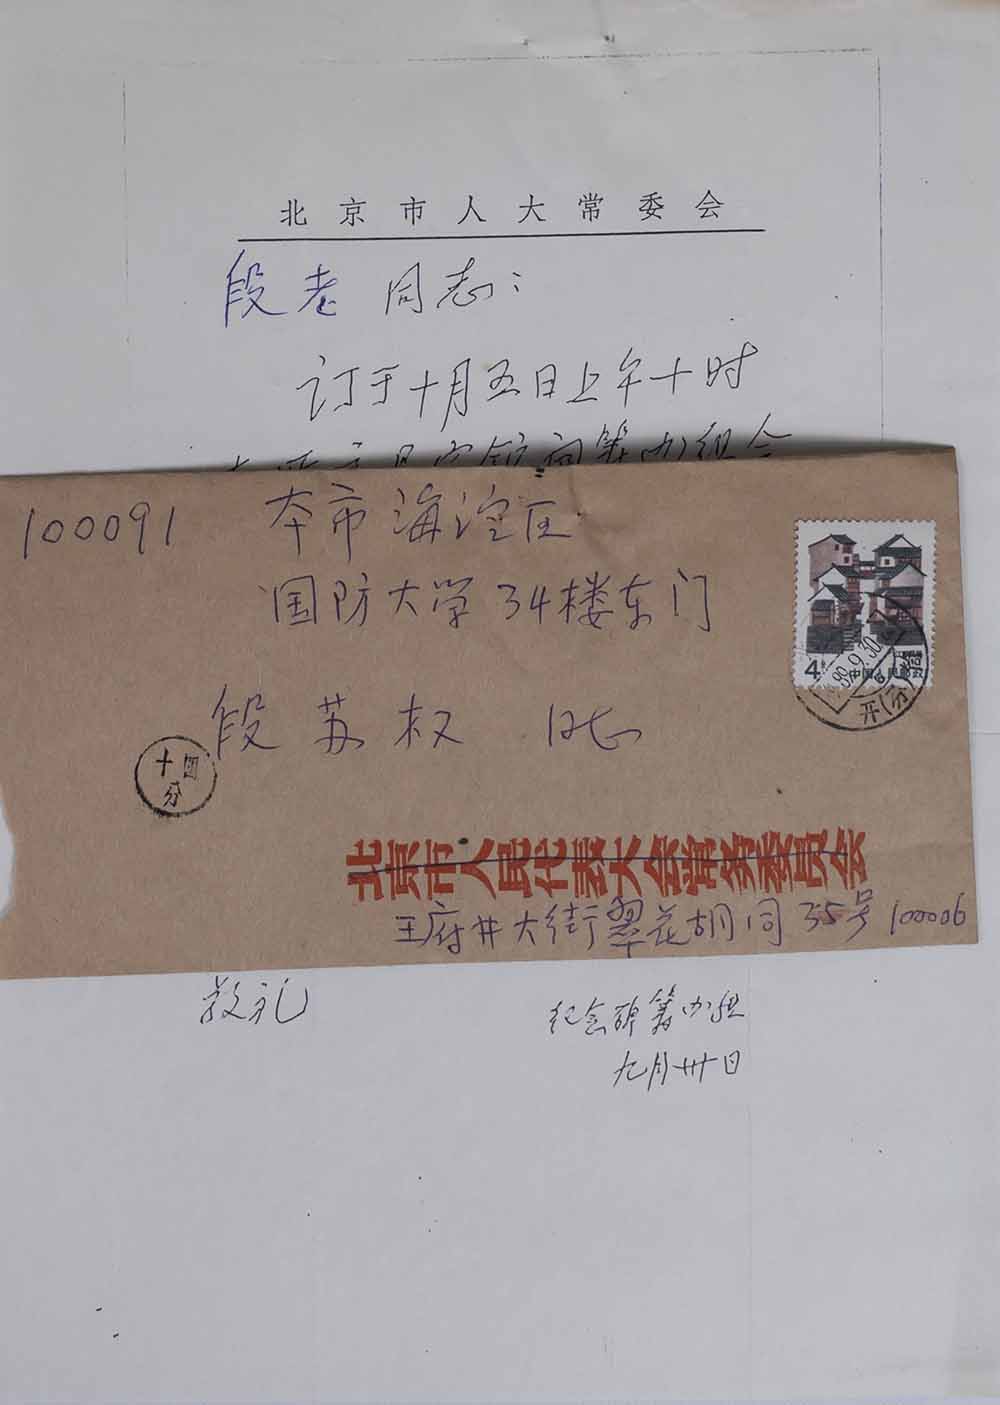 北京市人大常委会
段老 同志：
订于十月五日上午十时
筹办组会
100091
本市海淀区
国防大学34楼东门
段苏权 同志
4
中国人民邮政
9.30
开(分)
十四
分
北京市人民代表大会常务委员会
王府井大街翠花胡同35号 100006
敬礼
纪念碑筹办组
九月卅日